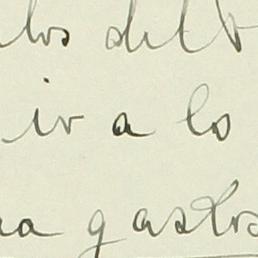 los del
ir a los
ra gastos